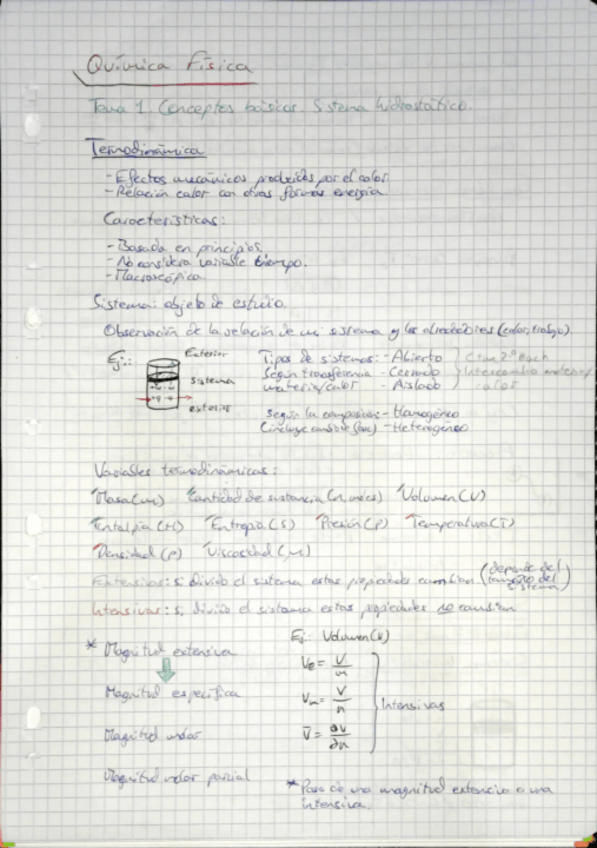 Química Física
Tema 1. Conceptos básicos. Sistema hidrostático.
Termodinámica
- Efectos mecánicos producidos por el calor
- Relación calor con otras formas energía
Características:
- Basada en principios.
- No considera variable tiempo.
- Macroscópica
Sistema: objeto de estudio.
Observación de la relación de mi sistema y los alrededores (calor, trabajo).
Ej.:
Exterior
sistema
exterior
Tipos de sistemas: - Abierto
Según transferencia - Cerrado
materia/calor - Aislado
2º Bach
Intercambio materia y
calor
Según la composición - Homogéneo
(incluye cambio fase) - Heterogéneo
Variables termodinámicas:
Masa (m) Cantidad de sustancia (n, moles) Volumen (V)
Entalpía (H) Entropía (S) Presión (P) Temperatura (T)
Densidad (ρ) Viscosidad (μ)
Extensivas: si divido el sistema estas propiedades cambian (depende del tamaño del sistema)
Intensivas: si divido el sistema estas propiedades no cambian
* Magnitud extensiva
Magnitud específica
Magnitud molar
Magnitud molar parcial
Ej: Volumen (V)
Ve = V/m
Vm = V/n
V̄ = ∂V/∂n
Intensivas
* Paso de una magnitud extensiva a una
intensiva.